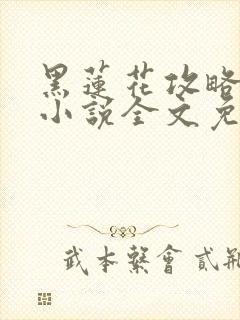 黑蓮花攻略
小說全文免
武本繫會貳瓶